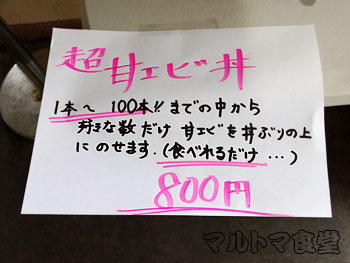 超 甘エビ丼
1本〜 100本!! までの中から
好きな数だけ 甘エビを丼ぶりの上
に のせます. (食べれるだけ …)
800円
マルトマ食堂